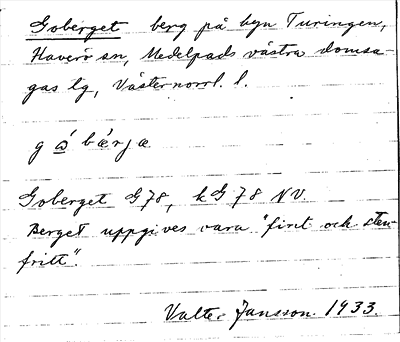 Goberget berg på byn Turingen,
Haverö sn, Medelpads västra domsa-
gas tg, Västernorrl. l.
g ó bærja
Goberget G78, kG78 NV.
Berget uppgives vara "fint och sten-
fritt".
Valter Jansson 1933.